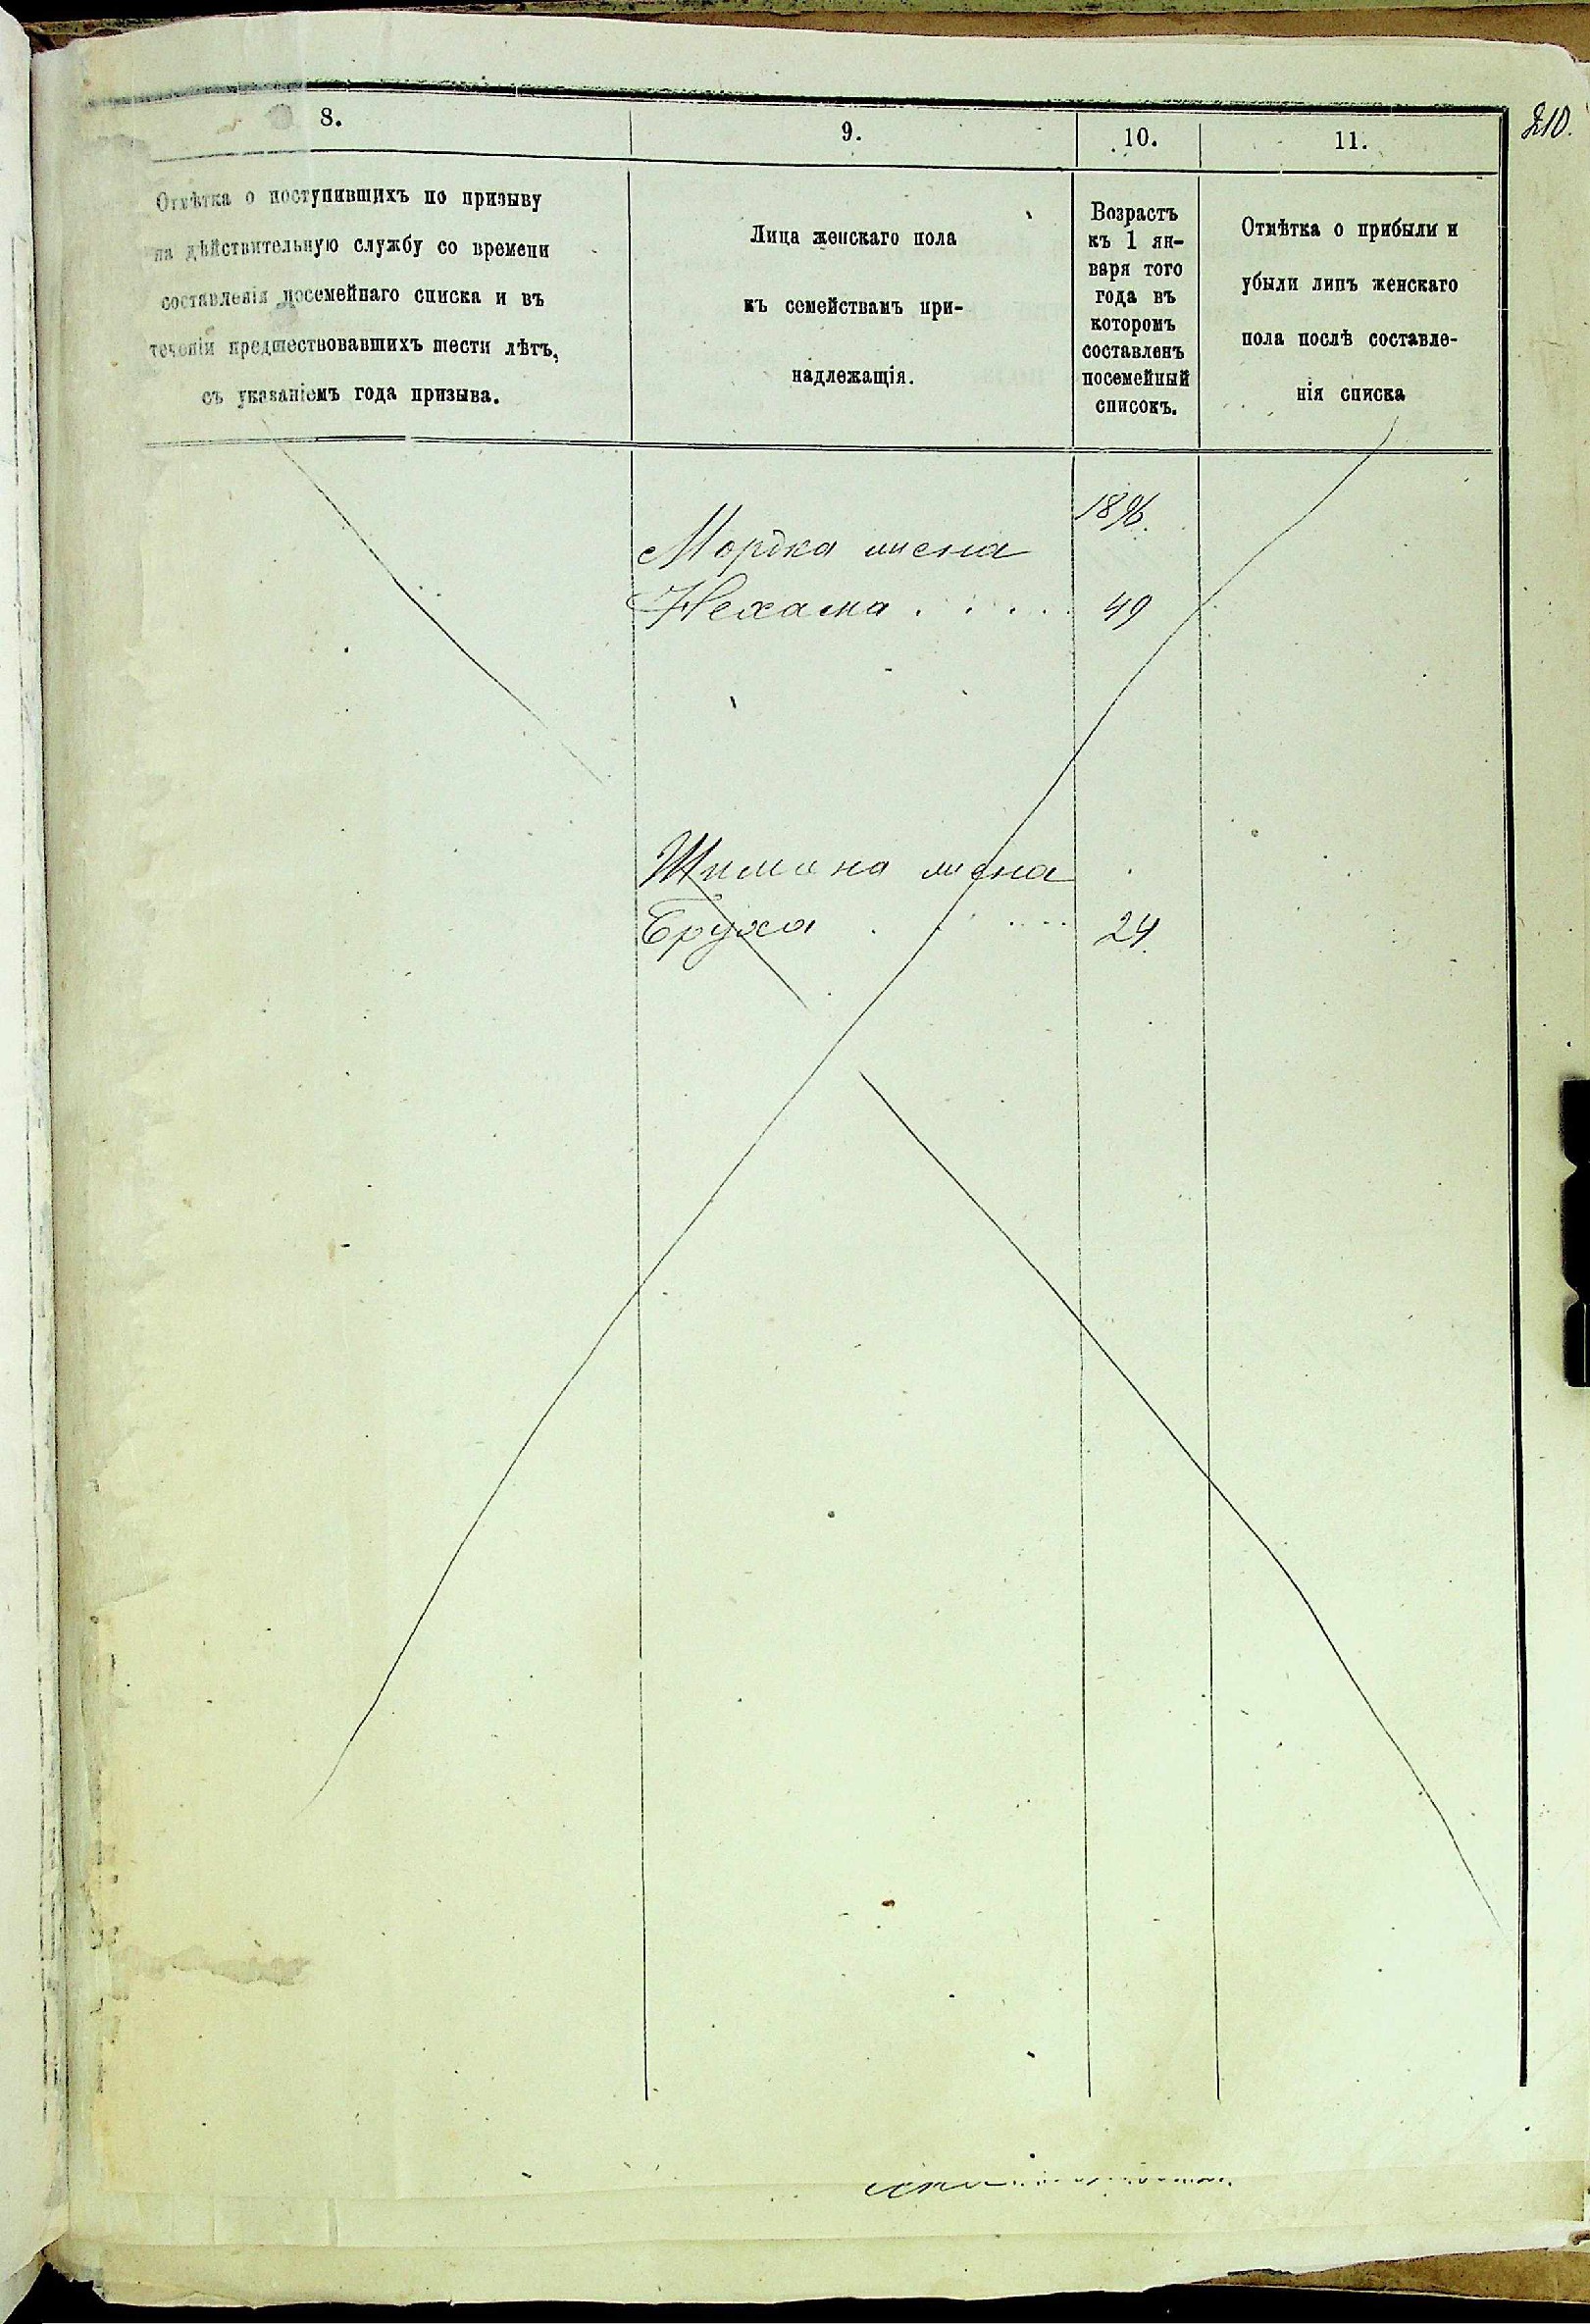 210.
8.
9.
10.
11.
Отмѣтка о поступившихъ по призыву
на дѣйствительную службу со времени
составленія посемейнаго списка и въ
теченіи предшествовавшихъ шести лѣтъ,
съ указаніемъ года призыва.
Лица женскаго пола
къ семействамъ при-
надлежащія.
Возрастъ
къ 1 ян-
варя того
года въ
которомъ
составленъ
посемейный
списокъ.
Отмѣтка о прибыли и
убыли лицъ женскаго
пола послѣ составле-
нія списка
1896.
Мордка жена
Нехама . . . . 49
Шимана жена
Бруха . . .... 24.